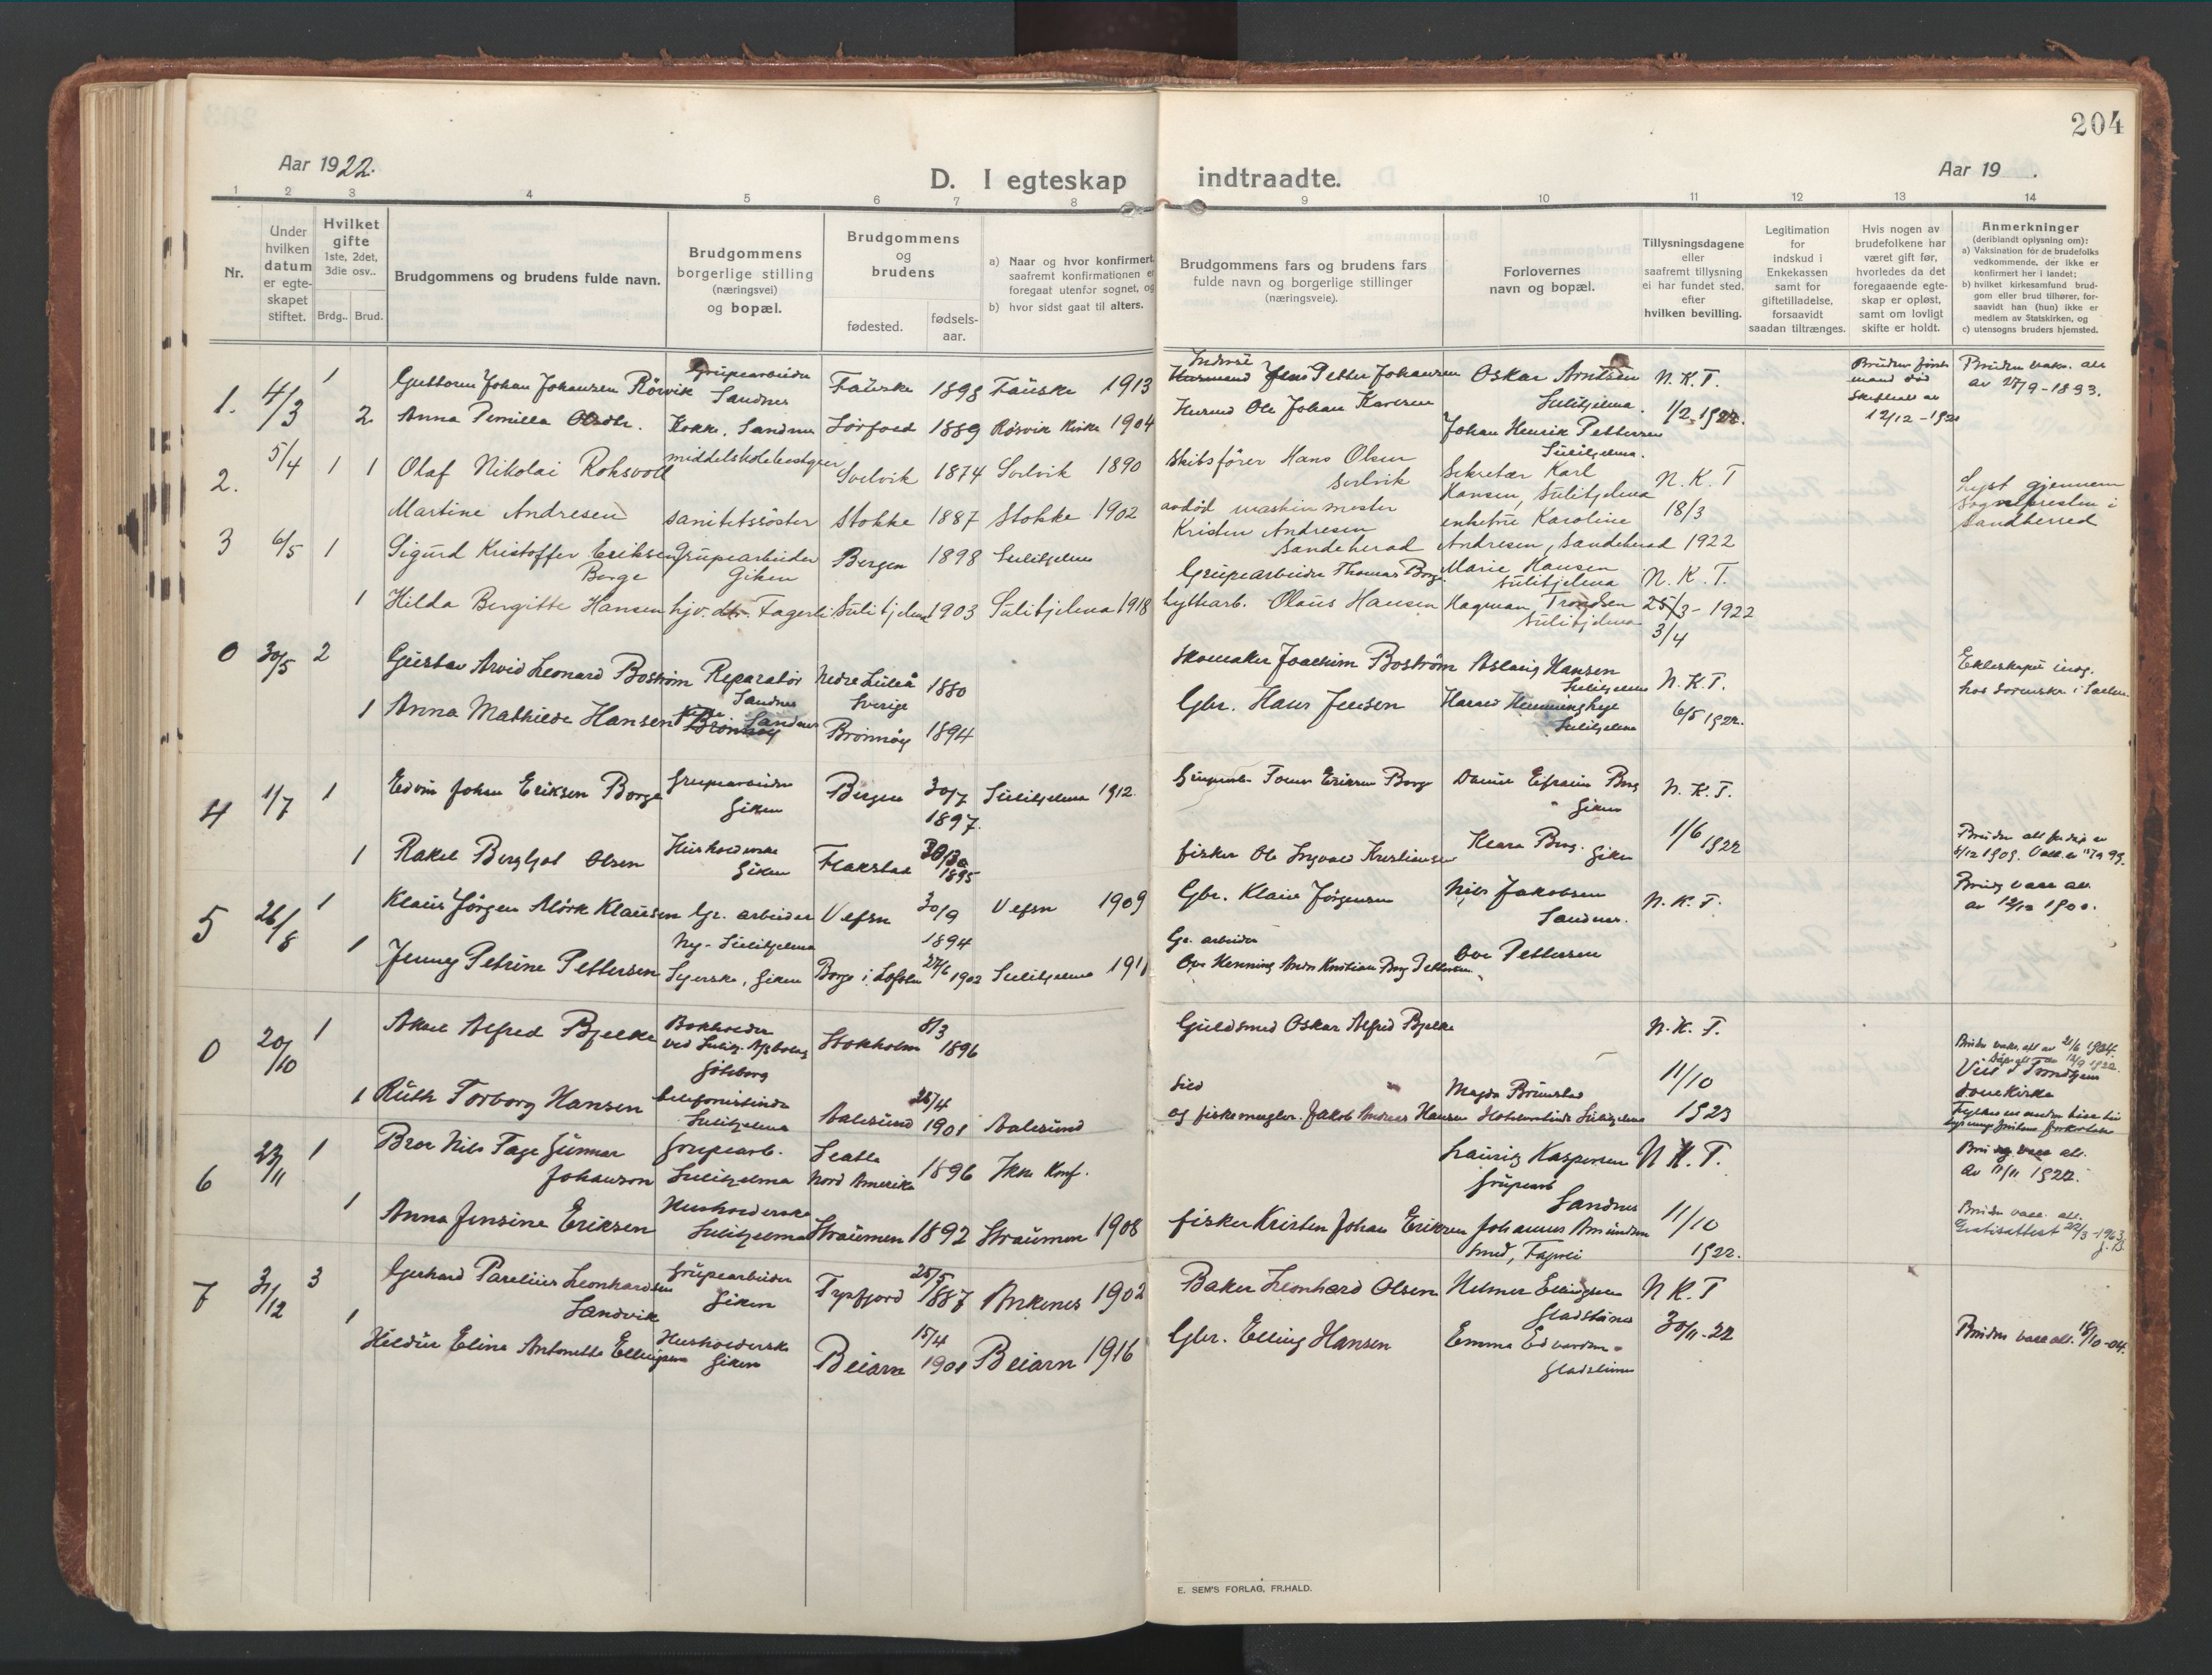 204
Aar 1922.
D. I egteskap indtraadte.
Aar 19 .
1 2 3 4 5 6 7 8 9 10 11 12 13 14
Nr.
Under hvilken datum er egteskapet stiftet.
Hvilket gifte 1ste, 2det, 3die osv..
Brdg.. Brud.
Brudgommens og brudens fulde navn.
Brudgommens borgerlige stilling (næringsvei) og bopæl.
Brudgommens og brudens
fødested. fødsels-aar.
a) Naar og hvor konfirmert
saafremt konfirmationen er
foregaat utenfor sognet, og
b) hvor sidst gaat til alters.
Brudgommens fars og brudens fars fulde navn og borgerlige stillinger (næringsveie).
Forlovernes navn og bopæl.
Tillysningsdagene eller saafremt tillysning ei har fundet sted, efter hvilken bevilling.
Legitimation for indskud i Enkekassen samt for giftetilladelse, forsaavidt saadan tiltrænges.
Hvis nogen av brudefolkene har været gift før, hvorledes da det foregaaende egteskap er opløst, samt om lovligt skifte er holdt.
Anmerkninger
(deriblandt oplysning om):
a) Vaksination för de brudefolks vedkommende, der ikke er konfirmert her i landet;
b) hvilket kirkesamfund brudgom eller brud tilhører, forsaavidt han (hun) ikke er medlem av Statskirken, og
c) utensogns bruders hjemsted.
1. 4/3 1 Guttorm Johan Johansen Rösvik Grupearbeider Sandnes Fauske 1898 Fauske 1913
Petter Johansen Oskar Arntsen Sulitjelma. N. K. T.
2 Anna Pernilla Kokke, Sandnes Sörfold 1889 Rösvik Kirke 1904
Ole Johan Karlsen Johan Henrik Pettersen Sulitjelma. 1/2 1922.
Brudens første mand död
12/12 - 1921
Bruden vakc. att. av 27/9 - 1893.
2. 5/4 1 1 Olaf Nikolai Roksvoll middelskolebestyrer Svelvik 1874 Svelvik 1890
Skibsfører Hans Olsen Svelvik Sekretær Karl Hansen, Sulitjelma N. K. T
Martine Andresen sanitetssöster Stokke 1887 Stokke 1902
avdød maskinmester Kristen Andresen Sandeherad enkefrue Karoline Andresen, Sandeherad 18/3 1922
Lyst gjennem sognepresten i Sandherred
3 6/5 1 Sigurd Kristoffer Eriksen Borge Grupearbeider Giken Bergen 1898 Sulitjelma
Grupearbeider Thomas Borge Marie Hansen Sulitjelma N. K. T.
1 Hilda Bergitte Hansen hjv. dtr. Fagerli Sulitjelma 1903 Sulitjelma 1918
hyttearb. Olaus Hansen Hagman Trondsen Sulitjelma 25/3 - 1922
3/4
0 30/5 2 Gustav Arvid Leonard Boström Reparatör Sandnes Nedre Luleå Sverige 1880
Skomaker Joachim Boström Aslaug Hansen Sulitjelma N. K. T.
1 Anna Mathilde Hansen Sandnes Brönnöy 1894
Gbr. Hans Jensen Harald Sulitjelma 6/5 1922.
4 1/7 1 Edvin Johan Eriksen Borge Grupearbeider Giken Bergen 30/7 1897. Sulitjelma 1912.
Eriksen Borge Daniel Efraim Borg Giken N. K. T.
1 Rakel Bergljot Olsen Husholderske Giken Flakstad 1895
fisker Ole Ingvald Kristiansen Klara Borg. Giken 1/6 1922
5 26/8 1 Klaus Jörgen Mörk Klausen Gr. arbeider Ny-Sulitjelma Vefsn 30/9 1894 Vefsn 1909
Gbr. Klaus Jørgensen Nils Jakobsen Sandnes. N. K. T.
1 Jenny Petrine Pettersen Syerske, Giken Borge i Lofoten 27/6 1902 Sulitjelma 1911
Gr. arbeider Henning Kristian Borg Pettersen Ove Pettersen
0 20/10 1 Aksel Alfred Bjelke Bokholder Göteborg Stokholm 8/3 1896
Guldsmed Oskar Alfred Bjelke N. K. T.
1 Ruth Torborg Hansen telefonistinde Sulitjelma Aalesund 26/4 1901 Aalesund
Sild og fiskemægler. Jakob Andreas Hansen Magda Sulitjelma 11/10 1923
Viet i Trondhjem Domkirke
6 23/11 1 Bror Nils Tage Gunnar Johanson Grupearb. Sulitjelma Seatle Nord Amerika 1896 Ikke Konf.
Lauritz Kaspersen Grupearb Sandnes N. K. T.
1 Anna Jensine Eriksen Husholderske Sulitjelma Straumen 1892 Straumen 1908
fisker Kristen Johan Eriksen Johannes Amundsen Smed, Fagerli 11/10 1922.
av 11/11 1922.
Gratisattest 22/3 - 1963.
7 31/12 3 Gerhard Parelius Leonhardsen Sandvik Grupearbeider Giken Tysfjord 25/5 1887 Ankenes 1902
Baker Leonhard Olsen Helmer Ellingsen Gladstuen N K. T
1 Hildur Eline Antonette Ellingsen Husholderske Giken Beiarn 15/4 1901 Beiarn 1916
Gbr. Elling Hansen Emma Edvardsen Gladstuen 30/11 - 22
Bruden vacc att. 18/10 - 04.
E. SEM'S FORLAG, FR.HALD.